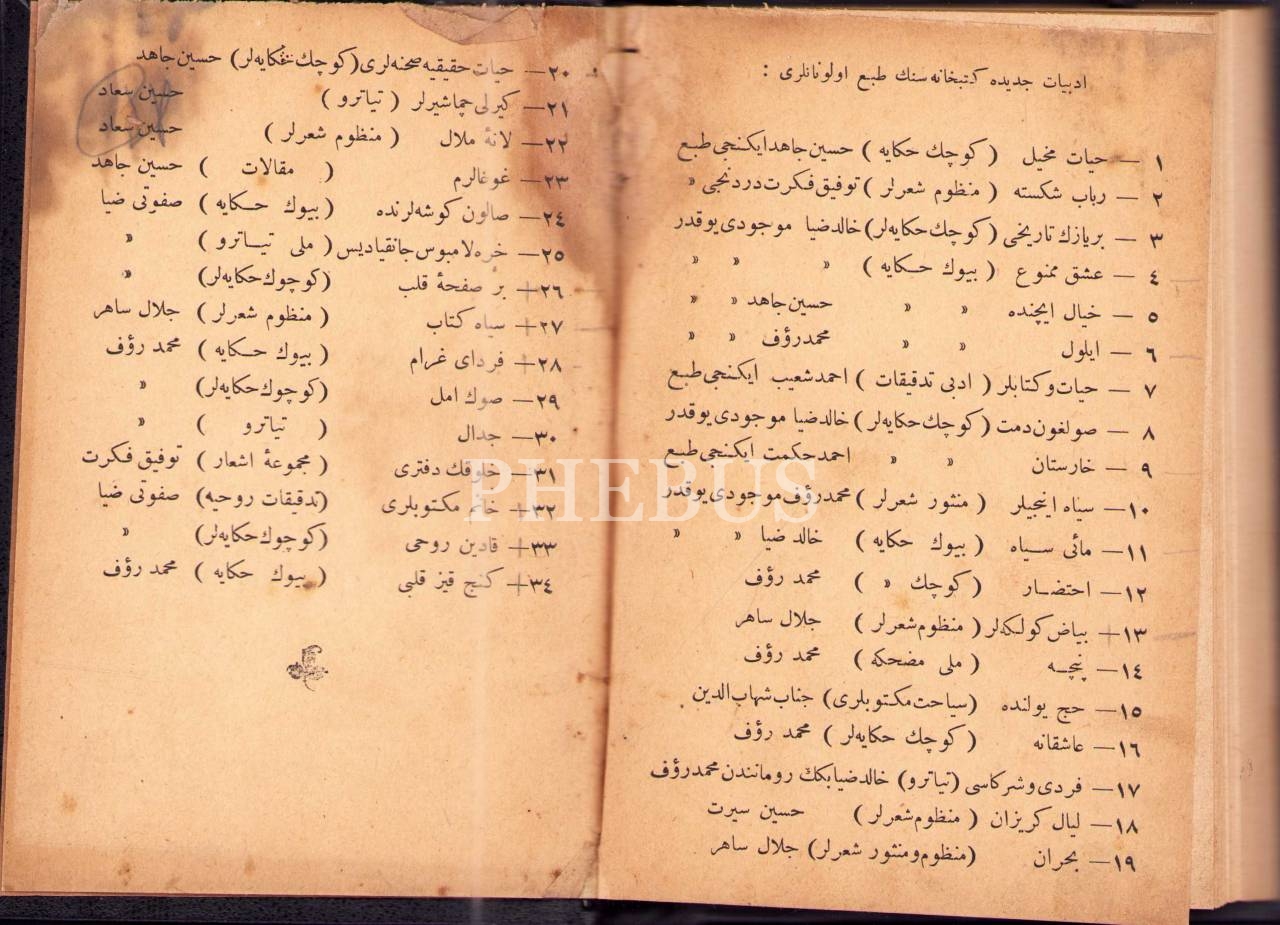 ادبيات جديده كتبخانه سنك طبع اولونانلرى :
١ — حيات مخيل ( كوچك حكايه ) حسين جاهد ايكنجى طبع
٢ — رباب شكسته ( منظوم شعرلر ) توفيق فكرت دردنجى »
٣ — بر يازك تاريخى ( كوچك حكايه لر ) خالد ضيا موجودى يوقدر
٤ — عشق ممنوع ( بيوك حكايه ) » » »
٥ — خيال ايچنده » » حسين جاهد » »
٦ — ايلول » » محمد رؤف » »
٧ — حيات و كتابلر ( ادبى تدقيقات ) احمد شعيب ايكنجى طبع
٨ — صولغون دمت ( كوچك حكايه لر ) خالد ضيا موجودى يوقدر
٩ — خارستان » » احمد حكمت ايكنجى طبع
١٠ — سياه اينجيلر ( منثور شعرلر ) محمد رؤف موجودى يوقدر
١١ — مائى سياه ( بيوك حكايه ) خالد ضيا » »
١٢ — احتضار ( كوچك » ) محمد رؤف
١٣ + بياض كولكه لر ( منظوم شعرلر ) جلال ساهر
١٤ — پنچه ( ملى مضحكه ) محمد رؤف
١٥ — حج يولنده ( سياحت مكتوبلرى ) جناب شهاب الدين
١٦ — عاشقانه ( كوچك حكايه لر ) محمد رؤف
١٧ — فردى و شركاسى ( تياترو ) خالد ضيا بكك رومانندن محمد رؤف
١٨ — ليال كريزان ( منظوم شعرلر ) حسين سيرت
١٩ — بحران ( منظوم و منثور شعرلر ) جلال ساهر
٢٠ — حيات حقيقيه صحنه لرى ( كوچك حكايه لر ) حسين جاهد
٢١ — كيرلى چماشيرلر ( تياترو ) حسين سعاد
٢٢ — لانهٔ ملال ( منظوم شعرلر ) حسين سعاد
٢٣ — غوغالرم ( مقالات ) حسين جاهد
٢٤ — صالون كوشه لرنده ( بيوك حكايه ) صفوتى ضيا
٢٥ — خره لامبوس جانقياديس ( ملى تياترو ) »
٢٦ + بر صفحهٔ قلب ( كوچوك حكايه لر ) »
٢٧ + سياه كتاب ( منظوم شعرلر ) جلال ساهر
٢٨ + فرداى غرام ( بيوك حكايه ) محمد رؤف
٢٩ — صوك امل ( كوچوك حكايه لر ) »
٣٠ — جدال ( تياترو ) »
٣١ — خلوقك دفترى ( مجموعهٔ اشعار ) توفيق فكرت
٣٢ + خانم مكتوبلرى ( تدقيقات روحيه ) صفوتى ضيا
٣٣ + قادين روحى ( كوچوك حكايه لر ) »
٣٤ + كنج قيز قلبى ( بيوك حكايه ) محمد رؤف
PHEBUS